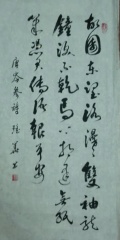 故園東望路漫漫雙袖龍
鐘淚不乾馬上相逢無紙
筆憑君傳語報平安
唐岑參詩